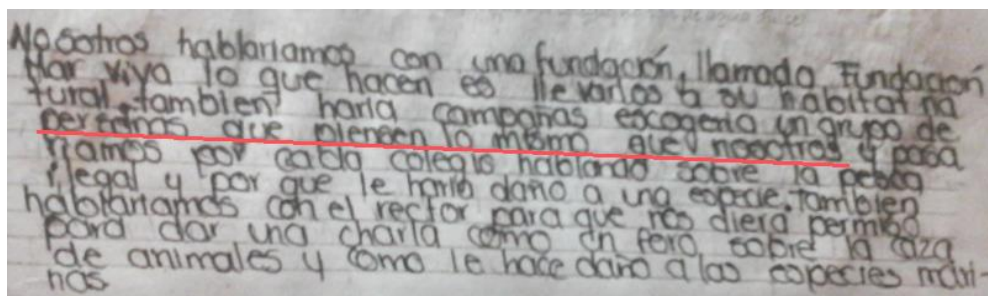 Nosotros hablariamos con una fundación, llamada Fundación
Mar viva lo que hacen es llevarlos a su habitat na
tural. tambien haria campañas escogeria un grupo de
personas que piensen lo mismo que nosotros y pasa
riamos por cada colegio hablando sobre la pesca
ilegal y por que le haria daño a una especie. tambien
hablariamos con el rector para que nos diera permiso
para dar una charla como un foro sobre la caza
de animales y como le hace daño a las especies mari-
nas